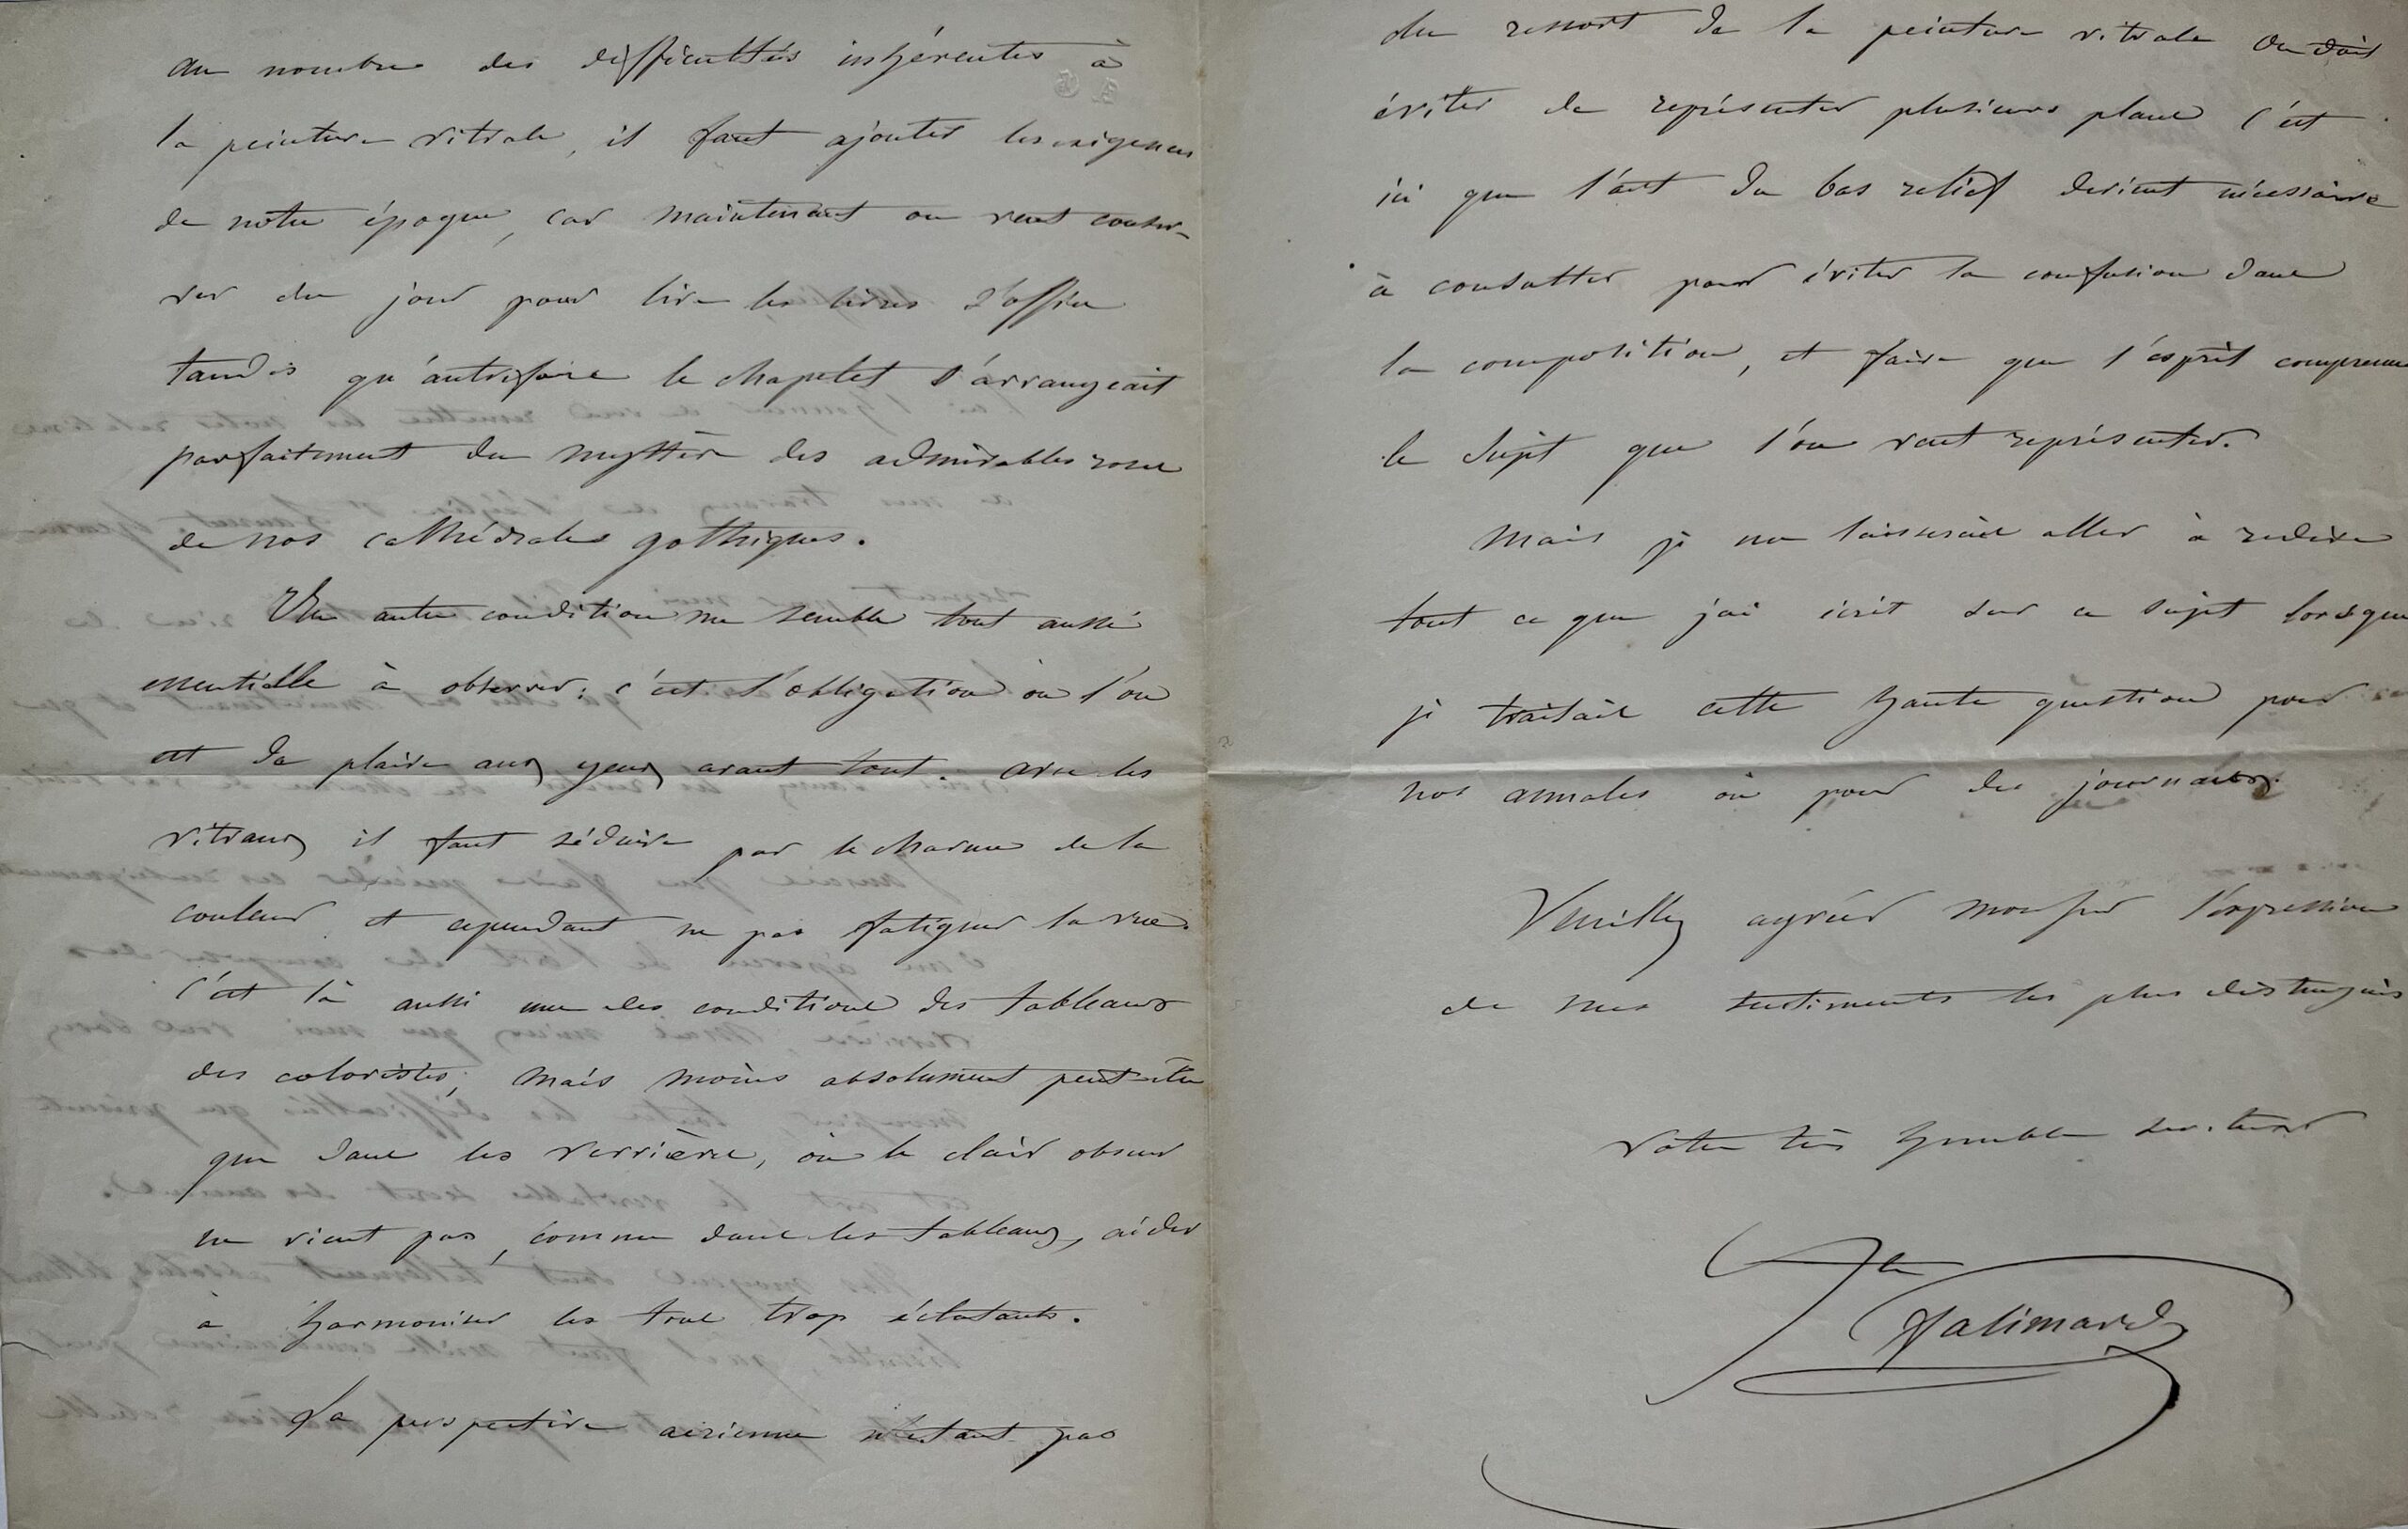 au nombre des difficultés inhérentes à
la peinture vitrale, il faut ajouter les exigences
de notre époque, car maintenant on veut conser-
ver du jour pour lire les livres d'office
tandis qu'autrefois le chapelet s'arrangeait
parfaitement du mystère des admirables roses
de nos cathédrales gothiques.
Une autre condition me semble tout aussi
essentielle à observer: c'est l'obligation où l'on
est de plaire aux yeux avant tout. avec les
vitraux il faut séduire par le charme de la
couleur et cependant ne pas fatiguer la vue.
c'est là aussi une des conditions des tableaux
des coloristes, mais moins absolument peut-être
que dans les verrières, où le clair obscur
ne vient pas, comme dans les tableaux, aider
à harmoniser les tons trop éclatants.
La perspective aérienne n'étant pas
du ressort de la peinture vitrale on doit
éviter de représenter plusieurs plans c'est
ici que l'art du bas relief devient nécessaire
à consulter pour éviter la confusion dans
la composition, et faire que l'esprit comprenne
le sujet que l'on veut représenter.
Mais je me laisserais aller à redire
tout ce que j'ai écrit sur ce sujet lorsque
je traitais cette haute question pour
nos annales ou pour des journaux.
Veuillez agréer monsieur l'expression
de mes sentiments les plus distingués
Votre très humble serviteur
Galimard